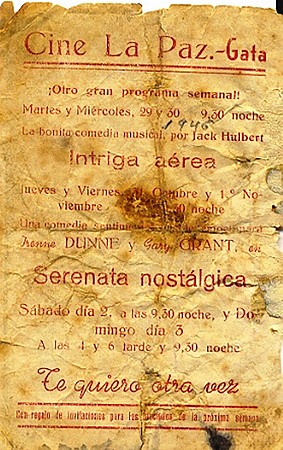 Cine La Paz.-Gata
¡Otro gran programa semanal!
Martes y Miércoles, 29 y 30 9,30 noche
1946
La bonita comedia musical, por Jack Hulbert
Intriga aérea
Jueves y Viernes, 31 Octubre y 1.º No-
viembre 9,30 noche
Una comedia
Irenne DUNNE y Gary GRANT, en
Serenata nostálgica
Sábado día 2, a las 9,30 noche, y Do-
mingo día 3
A las 4 y 6 tarde y 9,30 noche
Te quiero otra vez
Con regalo de invitaciones para las funciones de la próxima semana